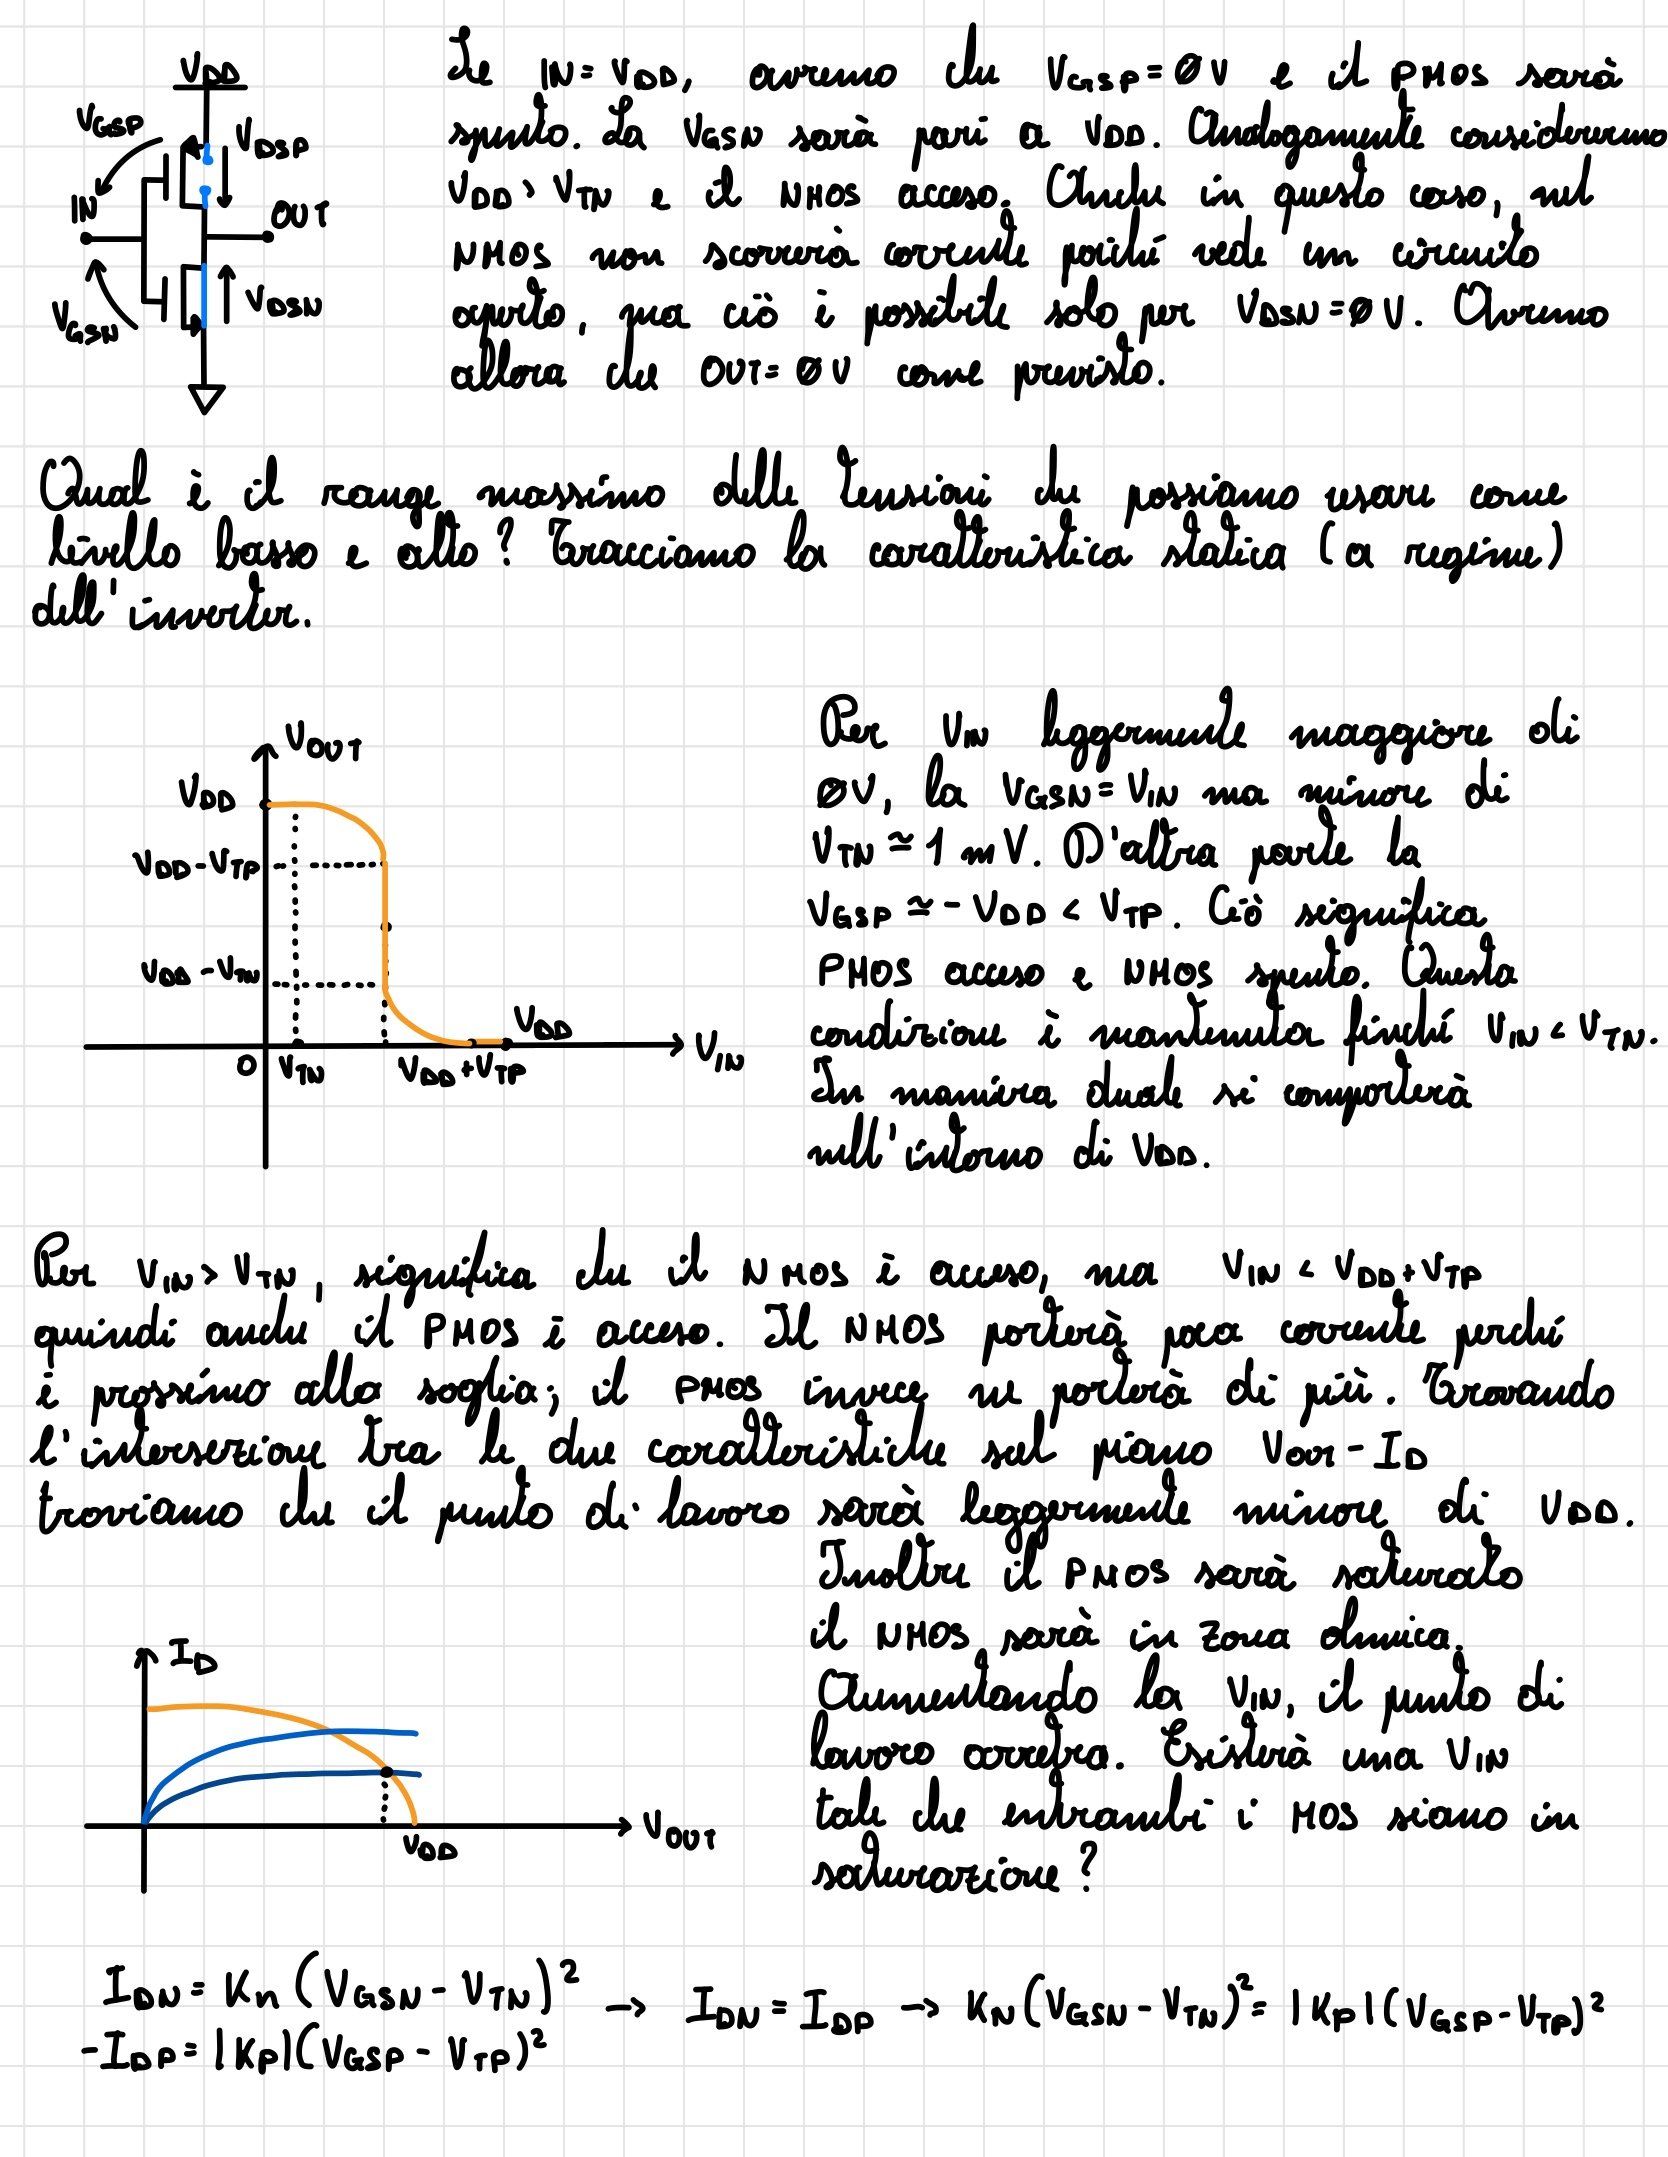 VDD
VGSP
VDSP
IN
OUT
VDSN
VGSN
Se IN = VDD, avremo che VGSP = ØV e il PMOS sarà
spento. La VGSN sarà pari a VDD. Analogamente consideremo
VDD > VTN e il NMOS acceso. Anche in questo caso, nel
NMOS non scorrerà corrente poiché vede un circuito
aperto, ma ciò è possibile solo per VDSN = ØV. Avremo
allora che OUT = ØV come previsto.
Qual è il range massimo delle tensioni che possiamo usare come
livello basso e alto? Tracciamo la caratteristica statica (a regime)
dell'inverter.
VOUT
VDD
VDD - VTP
VDD - VTN
0
VTN
VDD + VTP
VDD
VIN
Per VIN leggermente maggiore di
ØV, la VGSN = VIN ma minore di
VTN ≃ 1 mV. D'altra parte la
VGSP ≃ - VDD < VTP. Ciò significa
PMOS acceso e NMOS spento. Questa
condizione è mantenuta finché VIN < VTN.
In maniera duale si comporterà
nell'intorno di VDD.
Per VIN > VTN, significa che il NMOS è acceso, ma VIN < VDD + VTP
quindi anche il PMOS è acceso. Il NMOS porterà poca corrente perché
è prossimo alla soglia; il PMOS invece ne porterà di più. Trovando
l'intersezione tra le due caratteristiche sul piano VOUT - ID
troviamo che il punto di lavoro sarà leggermente minore di VDD.
Inoltre il PMOS sarà saturato
il NMOS sarà in zona ohmica.
Aumentando la VIN, il punto di
lavoro arretra. Esisterà una VIN
tale che entrambi i MOS siano in
saturazione?
ID
VDD
VOUT
IDN = Kn (VGSN - VTN)² → IDN = IDP → KN (VGSN - VTN)² = |KP| (VGSP - VTP)²
-IDP = |KP| (VGSP - VTP)²